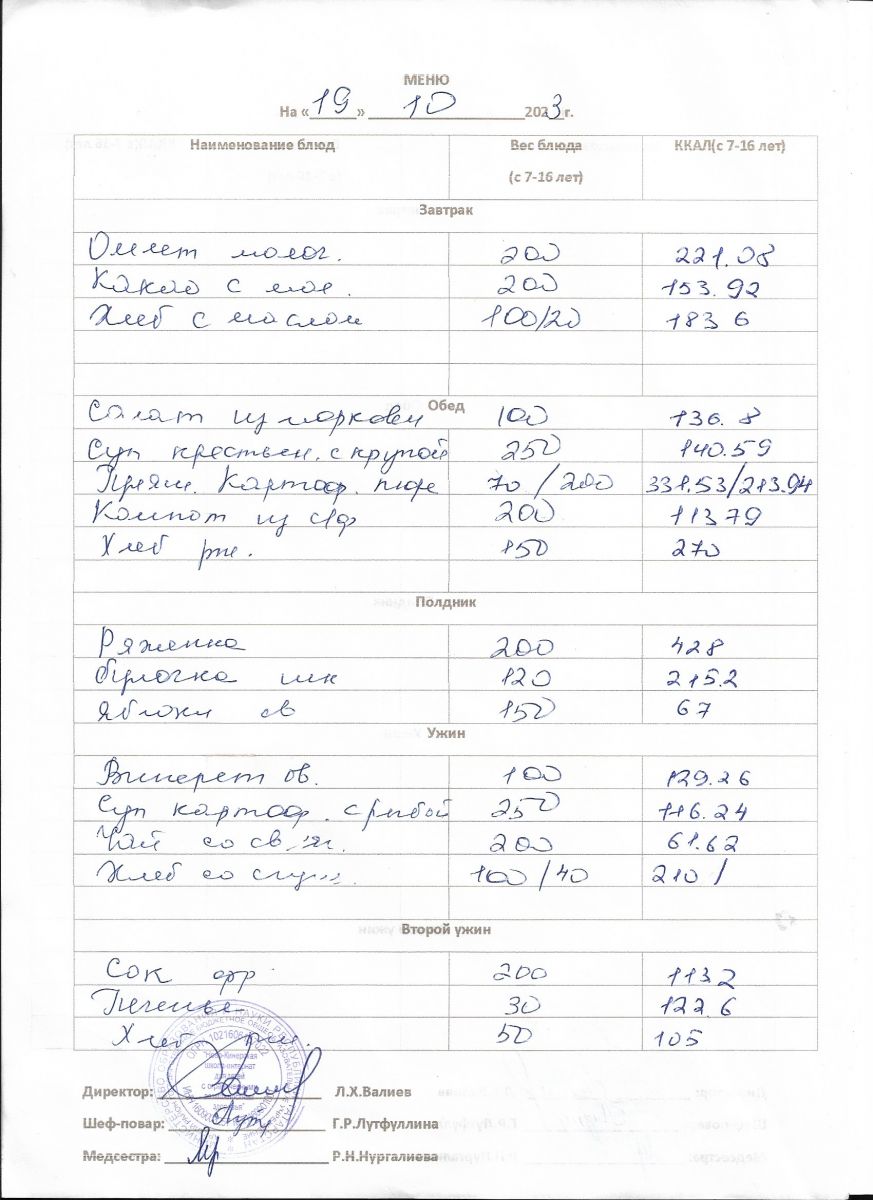 МЕНЮ
На «19» 10 2023 г.
Наименование блюд Вес блюда (с 7-16 лет) ККАЛ(с 7-16 лет)
Завтрак
Омлет молоч. 200 221.08
Какао с мол. 200 153.92
Хлеб с маслом 100/20 183 6
Обед
Салат из моркови 100 136.8
Суп крестьян. с крупой 250 140.59
Картоф. пюре 70/200 331.53/213.94
Компот из с/ф 200 113 79
Хлеб рж. 150 270
Полдник
Ряженка 200 428
булочка шк 120 215.2
яблоки св 150 67
Ужин
Винегрет ов. 100 129.26
Суп картоф. с рыбой 250 116.24
Чай со 200 61.62
Хлеб со сгущ. 100/40 210 /
Второй ужин
Сок фр 200 113 2
Печенье 30 122.6
Хлеб рж. 50 105
Директор: Л.Х.Валиев
Шеф-повар: Г.Р.Лутфуллина
Медсестра: Р.Н.Нургалиева